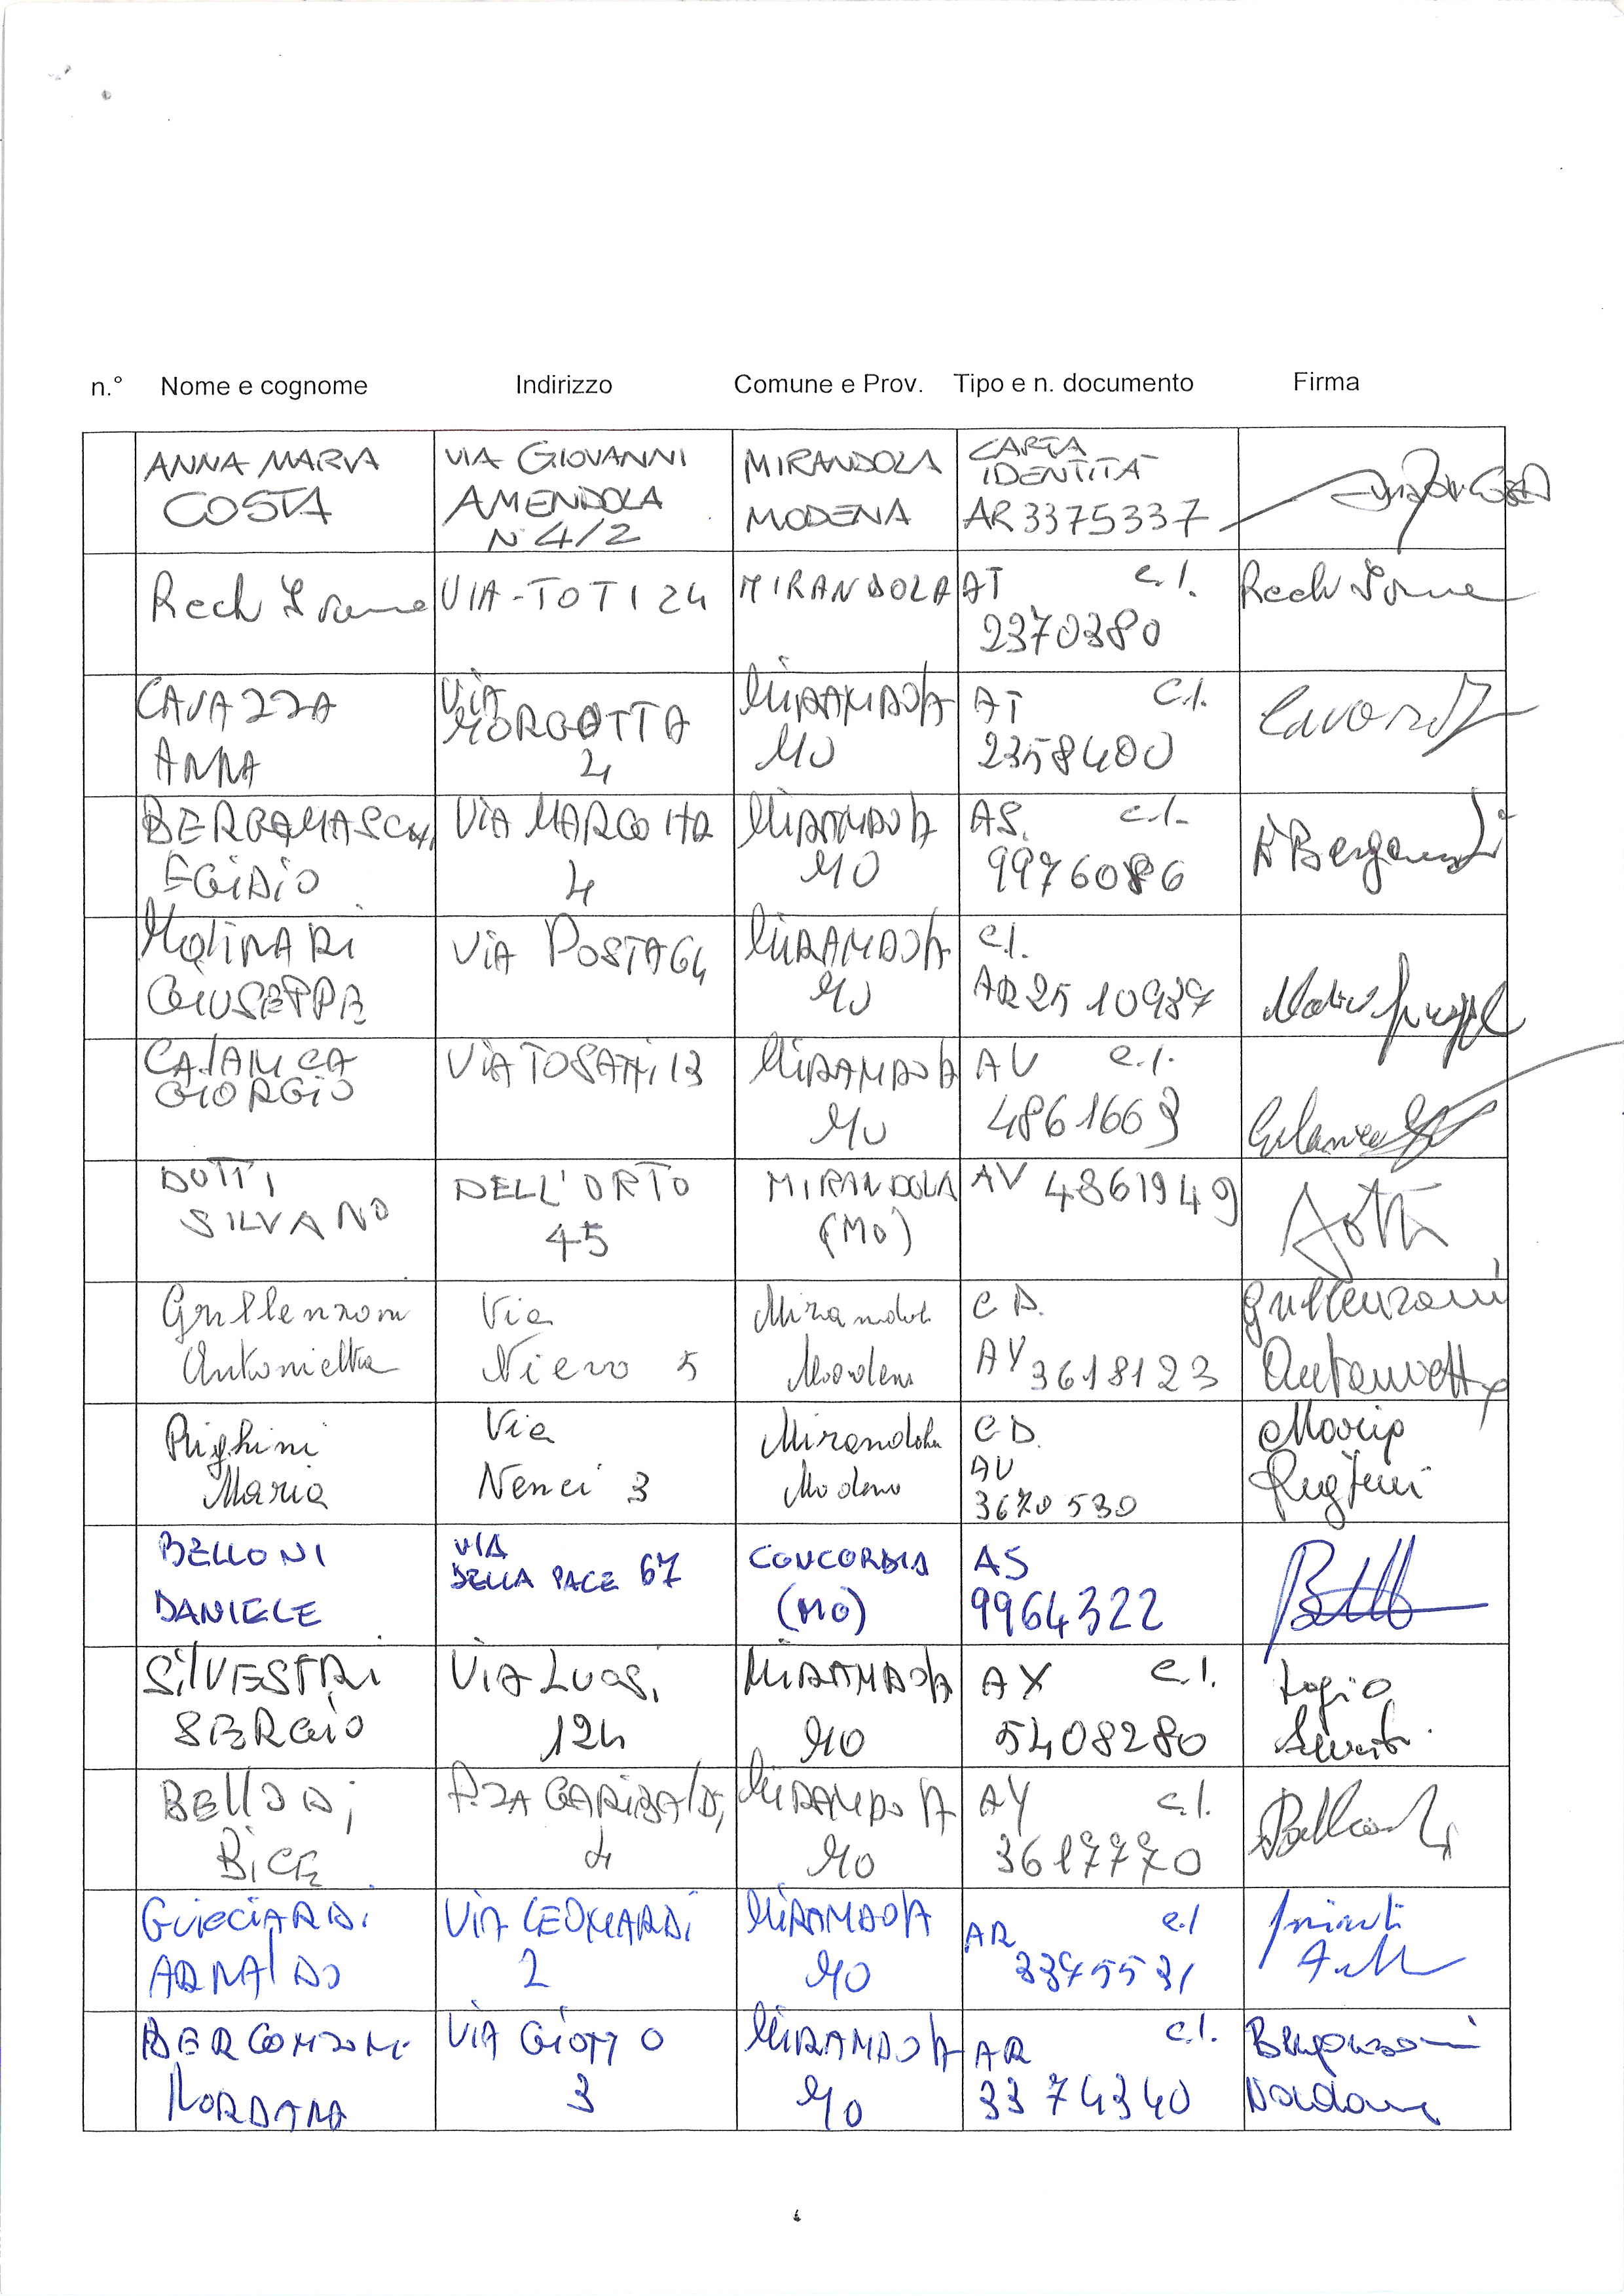 n.° Nome e cognome Indirizzo Comune e Prov. Tipo e n. documento Firma
ANNA MARIA VIA GIOVANNI MIRANDOLA CARTA IDENTITÀ
COSTA AMENDOLA MODENA AR 3375337
N 4/2
Rech VIA-TOTI 24 MIRANDOLA AT c.I. Rech
2370380
CAVAZZA VIA MIRANDOLA AT C.I.
ANNA 4 MO 2358400
BERGAMASCHI VIA MARGOTTA MIRANDOLA AS. c.I.
EGIDIO 4 MO 9976086
MOLINARI VIA POSTA 64 MIRANDOLA C.I.
GIUSEPPE MO AR2510937
CALANCA VIA TOSATTI, 13 MIRANDOLA AV C.I.
GIORGIO MO 4861663
DOTTI DELL'ORTO MIRANDOLA AV 4861949 Dotti
SILVANO 45 (MO)
Grillenzoni Via Mirandola C D. Grillenzoni
Antonietta Nievo 5 Modena AY 3618123 Antonietta
Pighini Via Mirandola C D. Maria
Maria Nenni 3 Modena AU
3670530
BELLONI VIA CONCORDIA AS
DANIELE DELLA PACE 67 (MO) 9964322
SILVESTRI VIA LUOSI MIRANDOLA AX C.I.
SERGIO MO 5408280
BELLODI P.ZA GARIBALDI, MIRANDOLA AY C.I.
BICE 4 MO 3617770
GUICCIARDI VIA LEOPARDI MIRANDOLA AR C.I
ARNALDO 2 MO 3375531
BERGONZONI VIA GIOTTO MIRANDOLA AR C.I. Bergonzoni
NORDANA 3 MO 3374340 Nordana